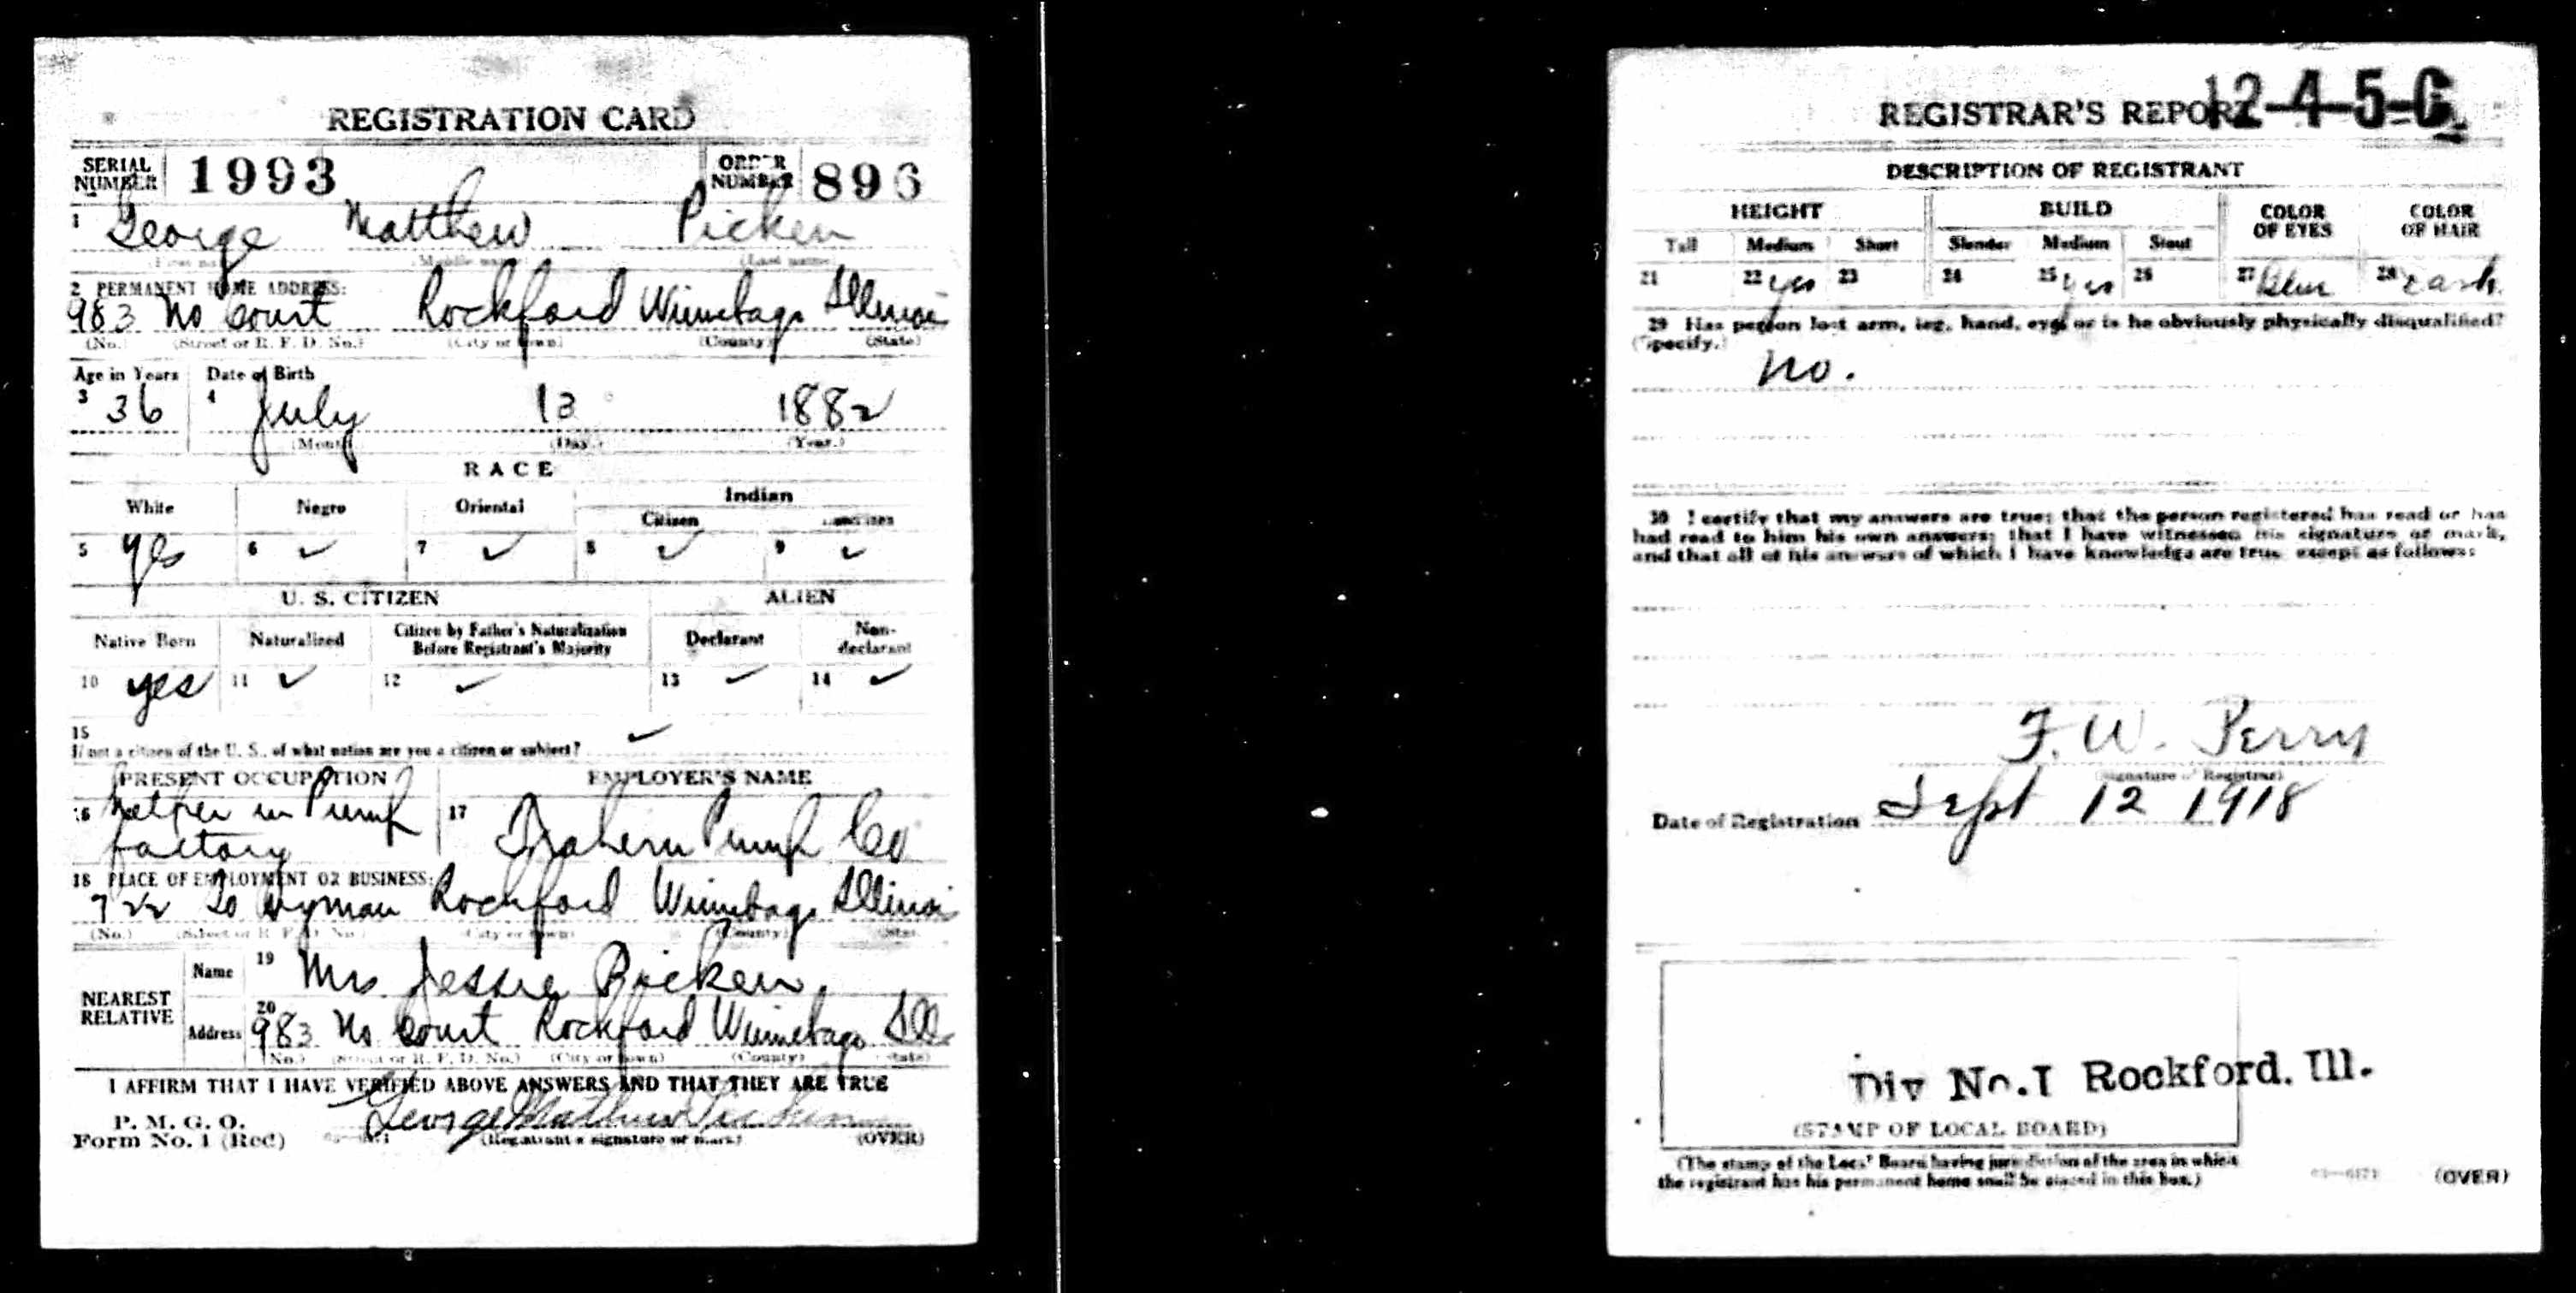 REGISTRATION CARD
SERIAL NUMBER 1993 ORDER NUMBER 896
1 George Matthew Picken
(First name) (Middle name) (Last name)
2 PERMANENT HOME ADDRESS:
983 No Court Rockford Winnebago Illinois
(No.) (Street or R. F. D. No.) (City or town) (County) (State)
Age in Years Date of Birth
3 36 4 July 13 1882
(Month) (Day.) (Year.)
RACE
White Negro Oriental Indian
Citizen
5 yes 6 ✓ 7 ✓ 8 ✓ 9 ✓
U. S. CITIZEN ALIEN
Native Born Naturalized Citizen by Father's Naturalization Before Registrant's Majority Declarant Non-declarant
10 yes 11 ✓ 12 ✓ 13 ✓ 14 ✓
15 ✓
If not a citizen of the U. S., of what nation are you a citizen or subject?
PRESENT OCCUPATION EMPLOYER'S NAME
16 Helper in Pump 17 Trahern Pump Co
factory
18 PLACE OF EMPLOYMENT OR BUSINESS:
722 So Wyman Rockford Winnebago Illinois
(No.) (Street or R. F. D. No.) (City or town) (County) (State)
NEAREST RELATIVE
Name 19 Mrs Jessie Picken
Address 20 983 No Court Rockford Winnebago Ill
(No.) (Street or R. F. D. No.) (City or town) (County) (State)
I AFFIRM THAT I HAVE VERIFIED ABOVE ANSWERS AND THAT THEY ARE TRUE
P. M. G. O.
Form No. 1 (Red) George Matthew Picken
(Registrant's signature or mark) (OVER)
REGISTRAR'S REPORT 12-4-5-C
DESCRIPTION OF REGISTRANT
HEIGHT BUILD COLOR OF EYES COLOR OF HAIR
Tall Medium Short Slender Medium Stout
21 22 yes 23 24 25 yes 26 27 Blue 28 Dark
29 Has person lost arm, leg, hand, eye, or is he obviously physically disqualified?
(Specify.)
No.
30 I certify that my answers are true; that the person registered has read or has
had read to him his own answers; that I have witnessed his signature or mark,
and that all of his answers of which I have knowledge are true, except as follows:
F. W. Perry
(Signature of Registrar)
Date of Registration Sept 12 1918
Div No.1 Rockford. Ill.
(STAMP OF LOCAL BOARD)
(The stamp of the Local Board having jurisdiction of the area in which
the registrant has his permanent home shall be placed in this box.)
(OVER)